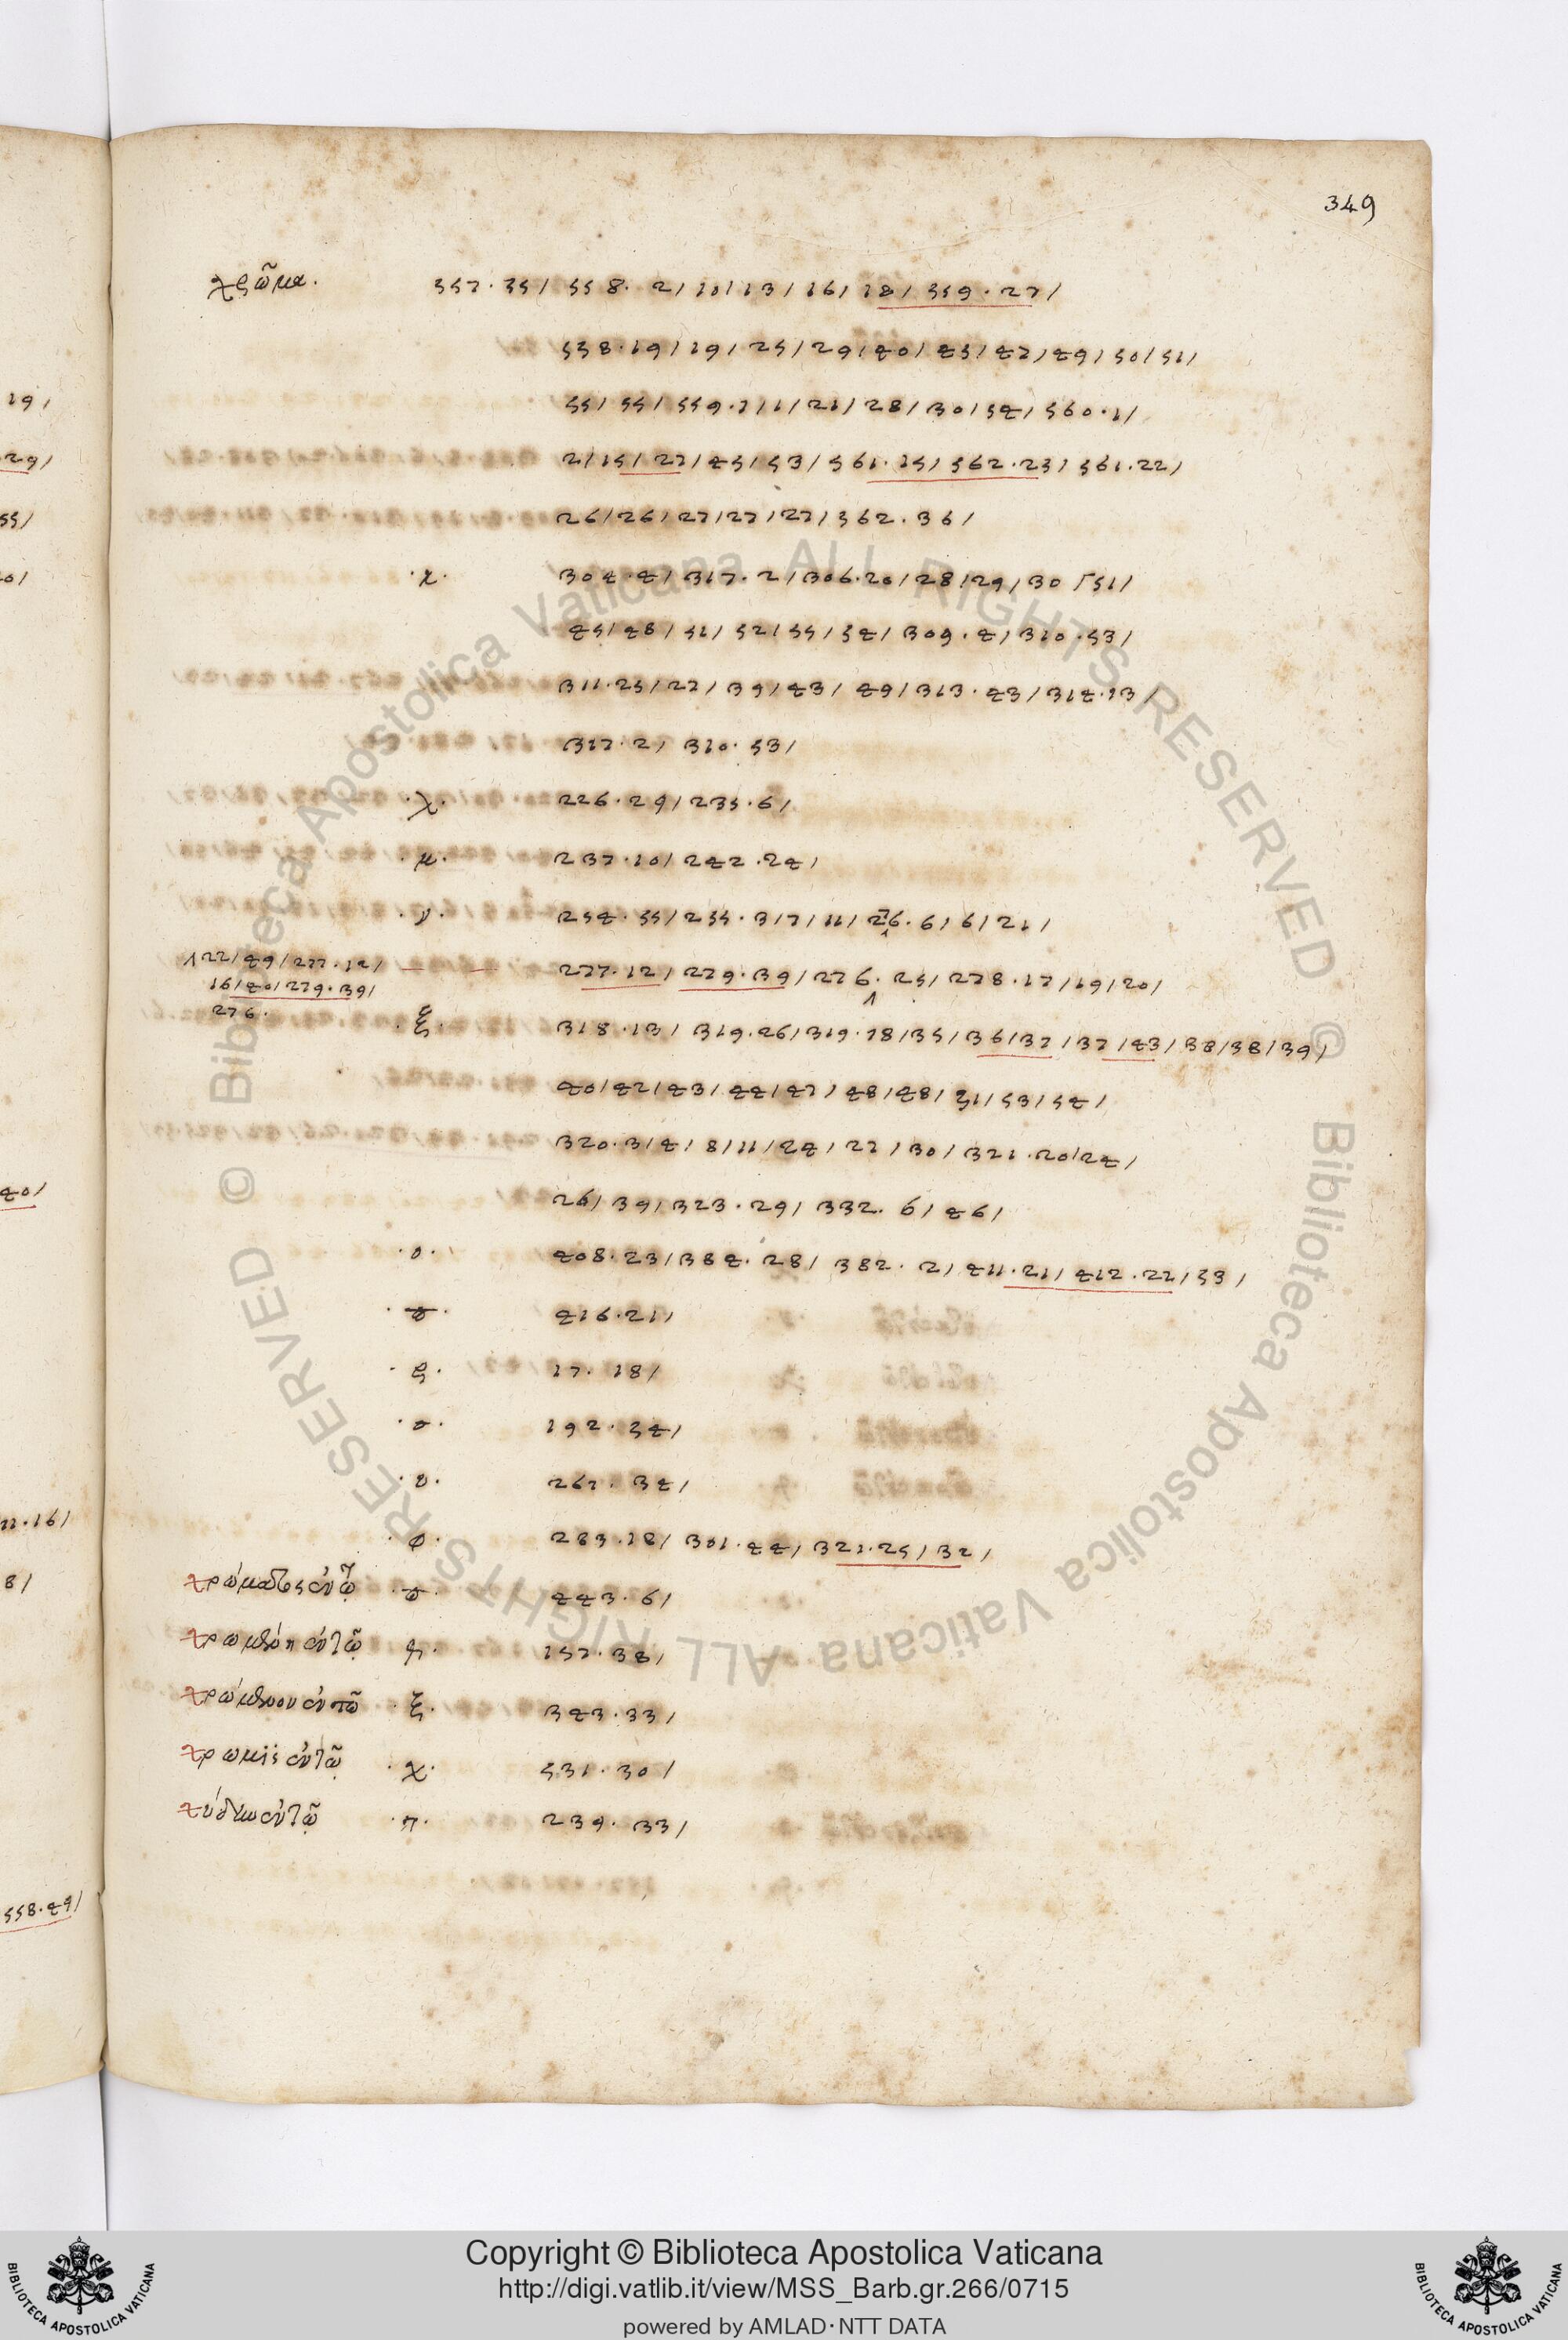 349
χρῶμα. 557.35/ 558. 2/ 10/ 13/ 16/ 18/ 559.27/
558.19/ 19/ 25/ 29/ 40/ 45/ 47/ 49/ 50/ 51/
55/ 55/ 559.1/ 1/ 21/ 28/ 30/ 54/ 560.1/
2/ 15/ 27/ 45/ 53/ 561.15/ 562.23/ 561.22/
26/ 26/ 27/ 27/ 27/ 562.36/
304.4/ 317.2/ 306.20/ 28/ 29/ 30/ 51/
45/ 48/ 51/ 52/ 55/ 54/ 309.4/ 310.53/
311.25/ 27/ 39/ 43/ 49/ 313.43/ 314.13/
317.2/ 310.53/
·λ. 226.29/ 235.6/
·μ. 237.10/ 242.24/
·ν. 254.55/ 255.3/ 7/ 11/ 6/ 6/ 21/
22/ 49/ 277.12/
16/ 40/ 279.39/
276.
277.12/ 279.39/ 276. 25/ 278.17/ 19/ 20/
·ξ. 318.13/ 319.26/ 319.18/ 35/ 36/ 37/ 37/ 43/ 38/ 38/ 39/
40/ 42/ 43/ 44/ 47/ 48/ 48/ 51/ 53/ 54/
320.3/ 4/ 8/ 11/ 24/ 27/ 30/ 321.20/ 24/
26/ 39/ 323.29/ 332.6/ 46/
·ο. 408.23/ 384.28/ 382.2/ 411.21/ 412.22/ 53/
416.21/
·ρ. 17.18/
·σ. 192.34/
·υ. 267.34/
·φ. 283.18/ 301.44/ 321.25/ 32/
443.6/
157.38/
·ξ. 343.33/
χρωμὶς ἐν τῷ ·χ. 531.30/
·π. 239.33/
19/
29/
55/
40/
16/
8/
558.49/
Copyright © Biblioteca Apostolica Vaticana
http://digi.vatlib.it/view/MSS_Barb.gr.266/0715
powered by AMLAD·NTT DATA
BIBLIOTECA APOSTOLICA VATICANA
BIBLIOTECA APOSTOLICA VATICANA
© Biblioteca Apostolica Vaticana ALL RIGHTS RESERVED
© Biblioteca Apostolica Vaticana ALL RIGHTS RESERVED